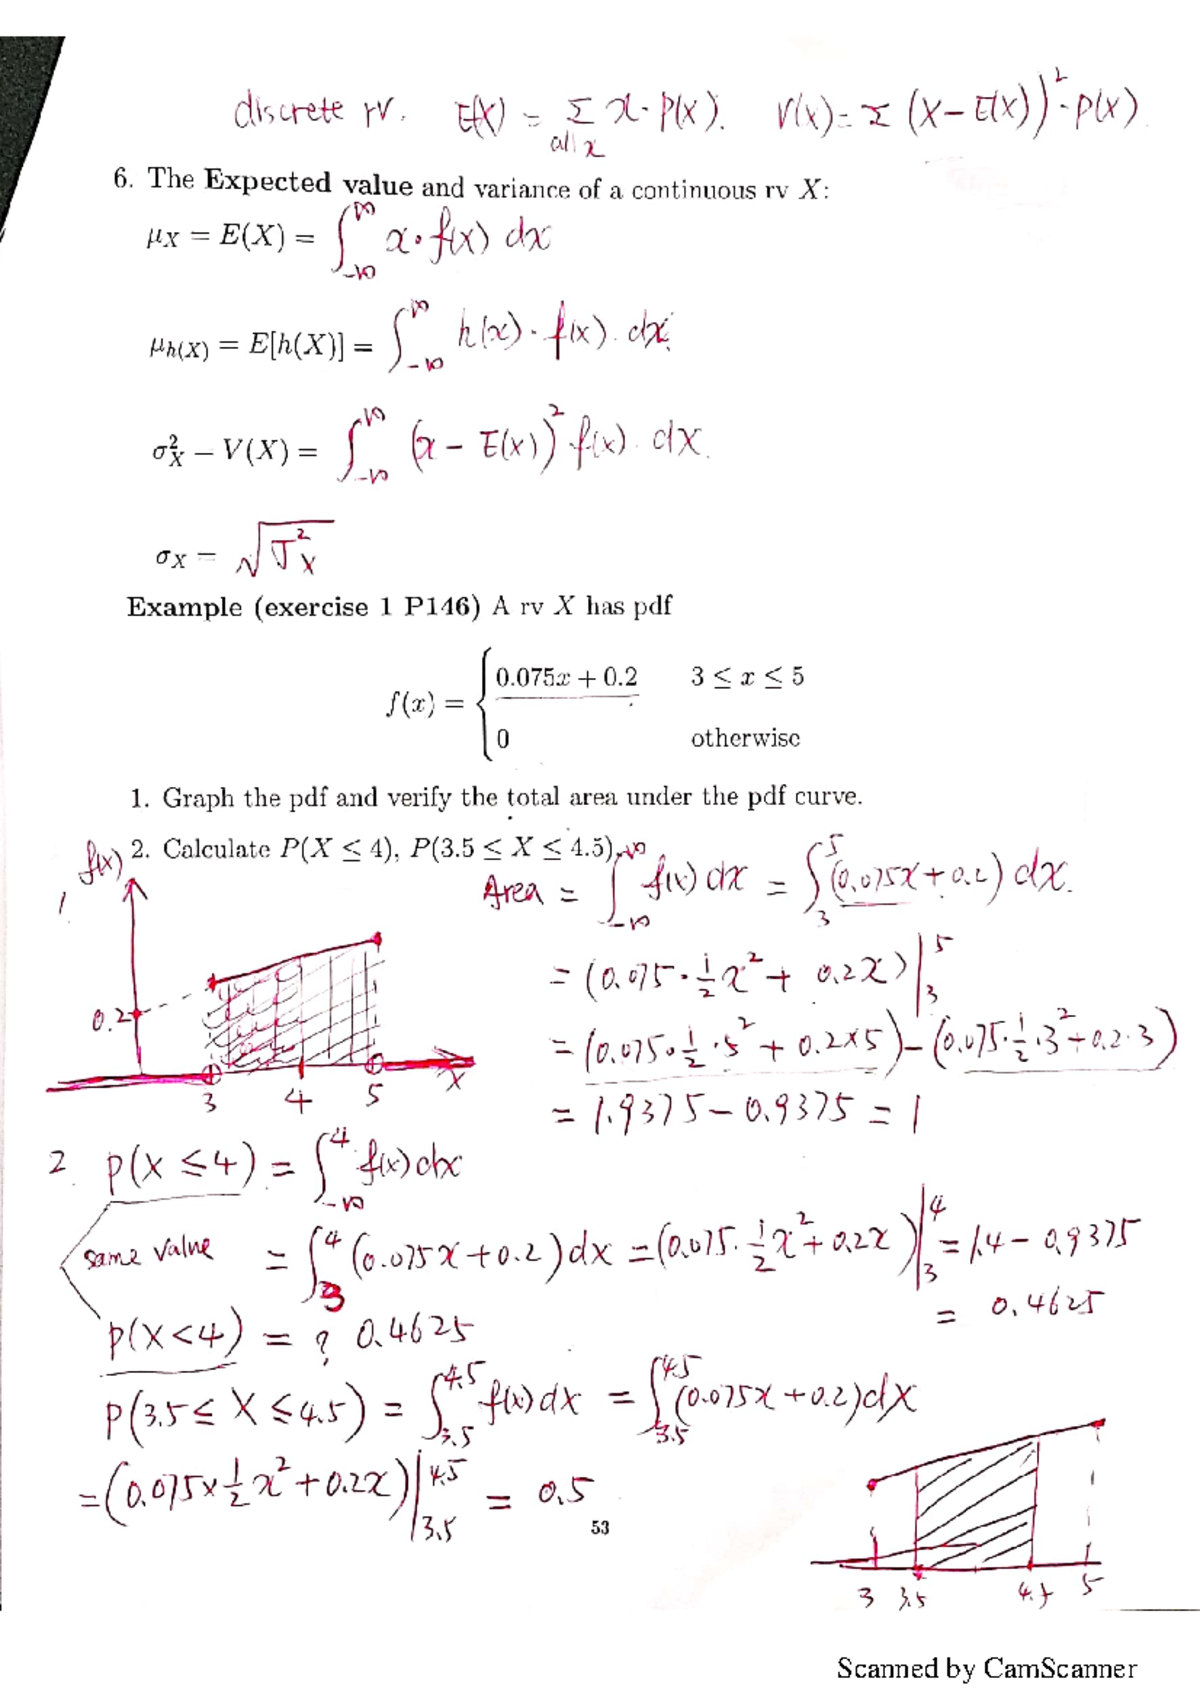 discrete rv. E(X) = Σ x · p(x). V(x) = Σ (x − E(x))² · p(x)
all x
6. The Expected value and variance of a continuous rv X:
μX = E(X) = ∫_{-∞}^{∞} x · f(x) dx
μh(X) = E[h(X)] = ∫_{-∞}^{∞} h(x) · f(x) · dx
σ²X = V(X) = ∫_{-∞}^{∞} (x − E(x))² f(x) · dx.
σX = √σ²X
Example (exercise 1 P146) A rv X has pdf
f(x) = { 0.075x + 0.2   3 ≤ x ≤ 5
0   otherwise
1. Graph the pdf and verify the total area under the pdf curve.
2. Calculate P(X ≤ 4), P(3.5 ≤ X ≤ 4.5).
f(x)
1
Area = ∫_{-∞}^{∞} f(x) dx = ∫_{3}^{5} (0.075x + 0.2) dx.
= (0.075 · ½ x² + 0.2x) |_{3}^{5}
0.2
= (0.075 · ½ · 5² + 0.2×5) − (0.075 · ½ · 3² + 0.2 · 3)
3 4 5 x
= 1.9375 − 0.9375 = 1
2. p(X ≤ 4) = ∫_{-∞}^{4} f(x) dx
same value = ∫_{3}^{4} (0.075x + 0.2) dx = (0.075 · ½ x² + 0.2x) |_{3}^{4} = 1.4 − 0.9375
= 0.4625
p(X < 4) = ? 0.4625
p(3.5 ≤ X ≤ 4.5) = ∫_{3.5}^{4.5} f(x) dx = ∫_{3.5}^{4.5} (0.075x + 0.2) dx
= (0.075 × ½ x² + 0.2x) |_{3.5}^{4.5} = 0.5
53
3 3.5 4.5 5
Scanned by CamScanner